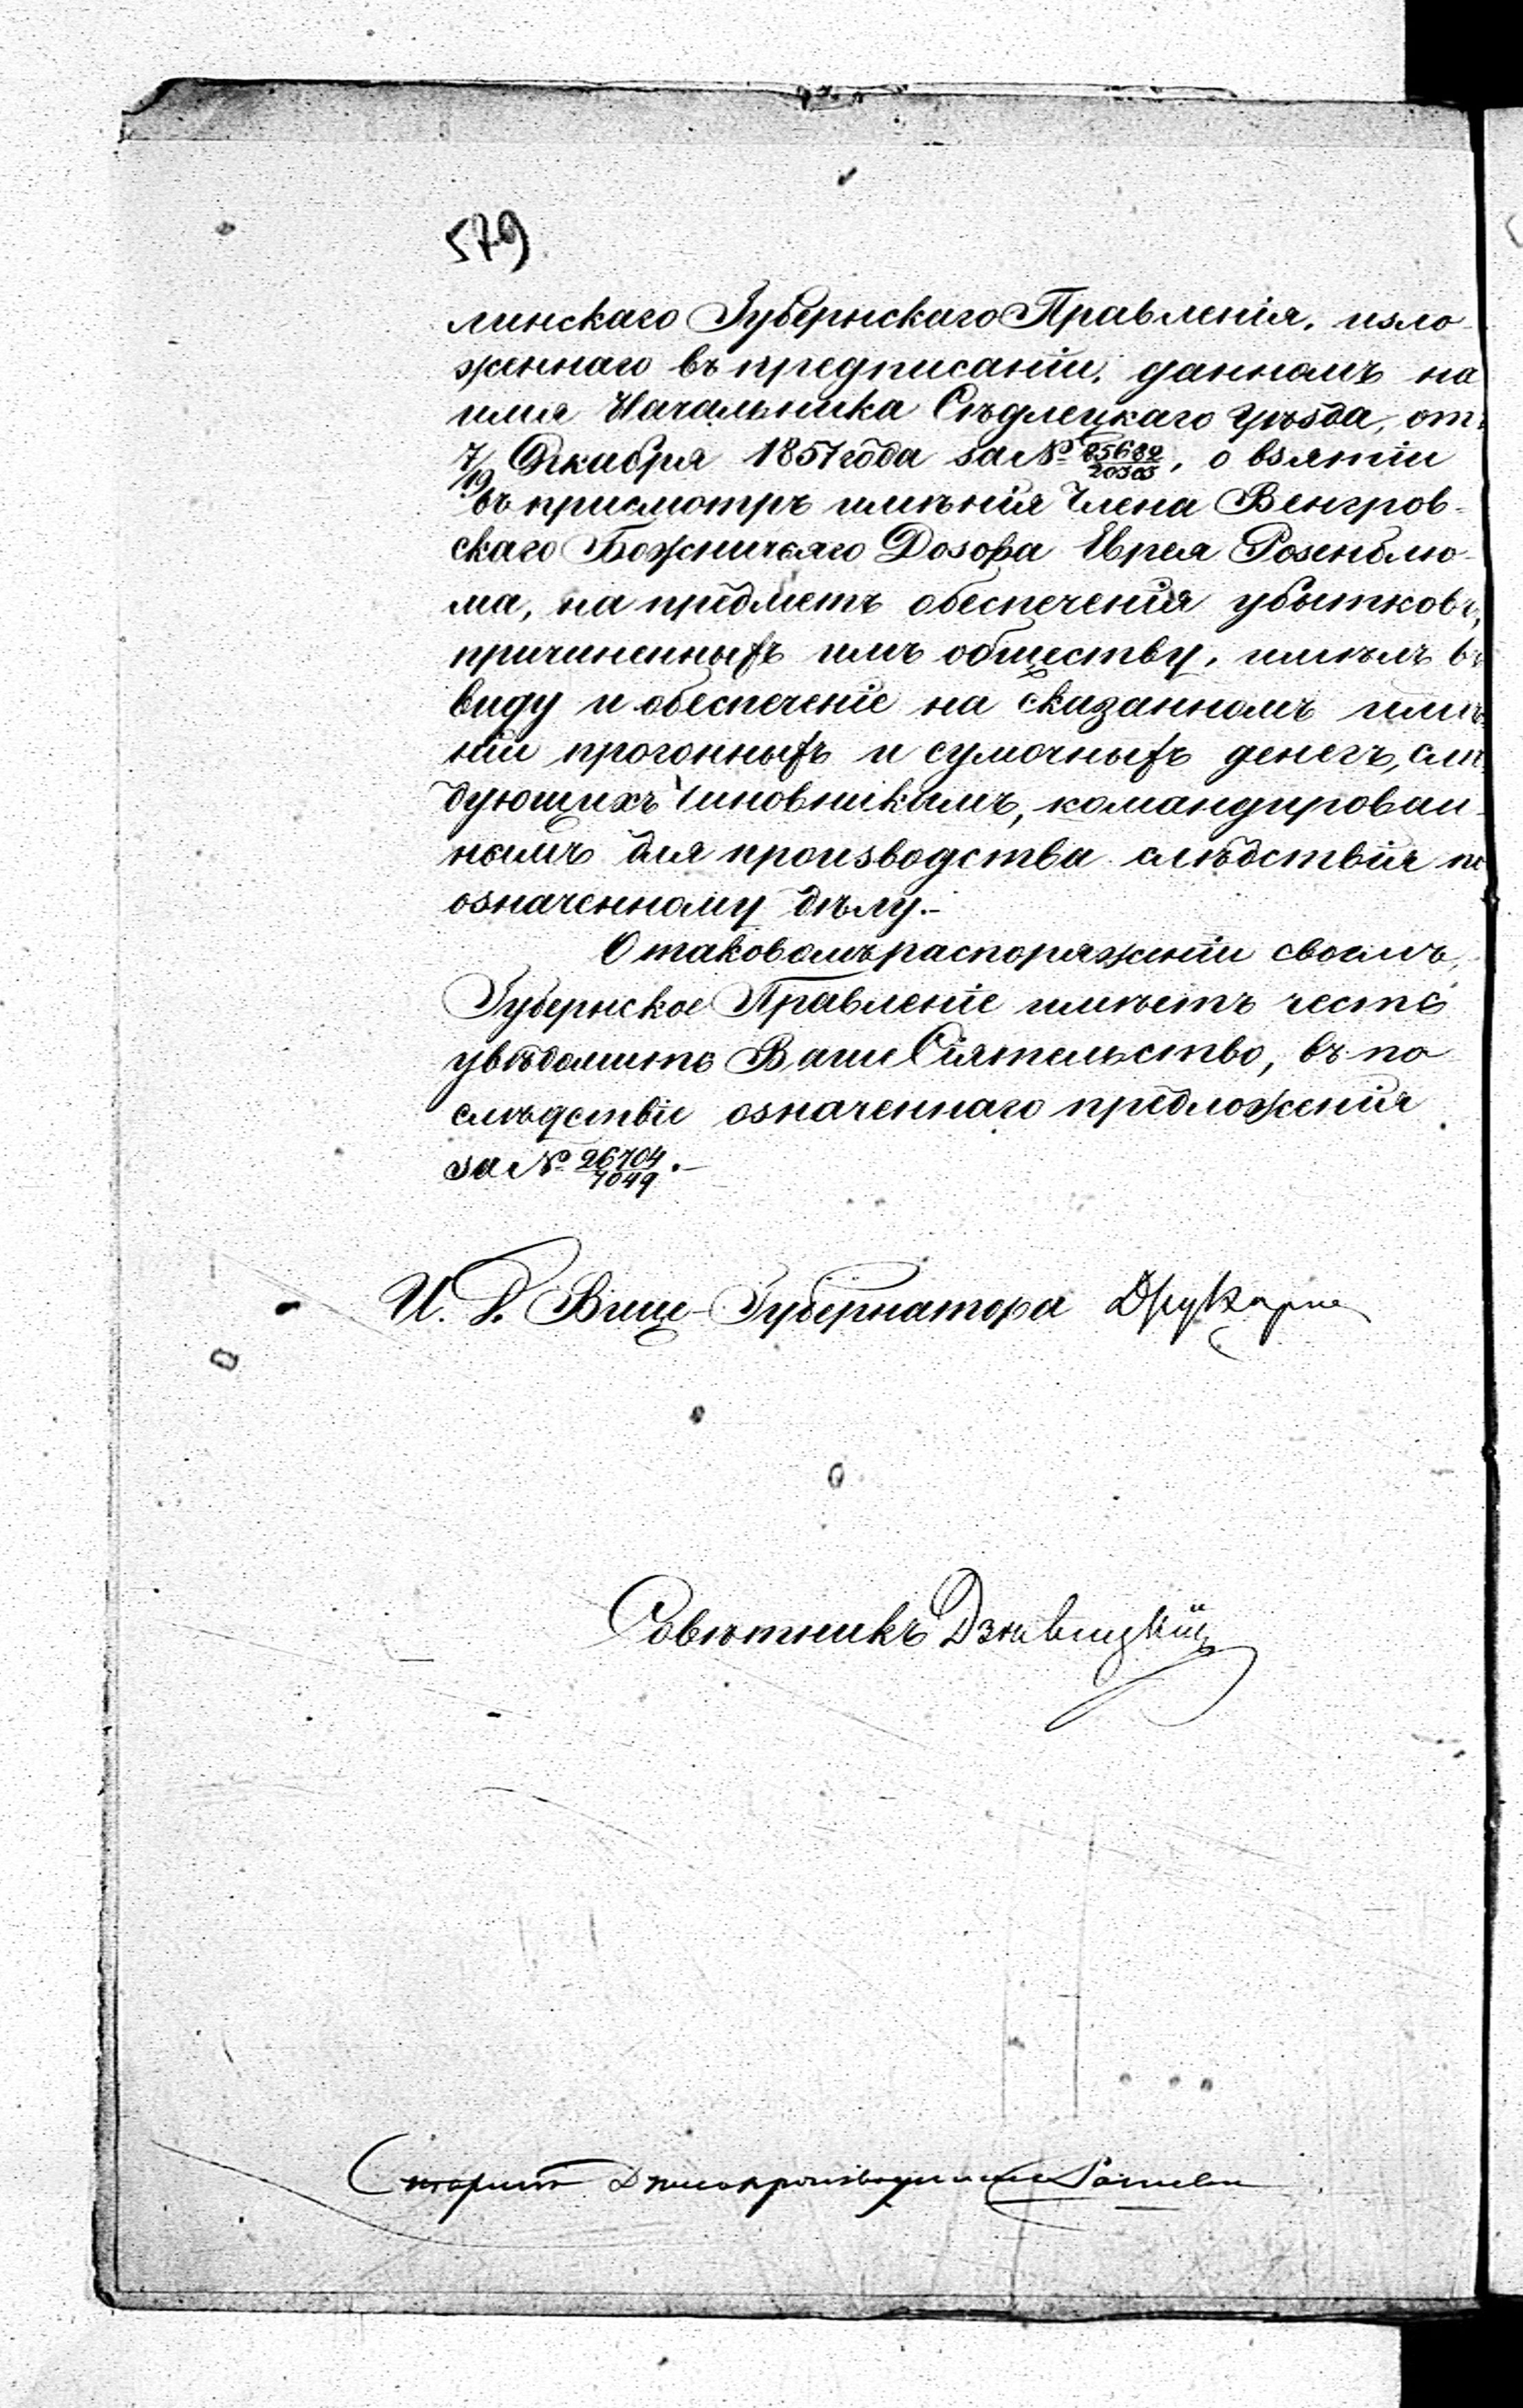 579
линскаго Губернскаго Правленія, изло-
женнаго въ предписаніи, данномъ на
имя Начальника Сѣдлецкаго Уѣзда, отъ
7/19 Декабря 1857 года за №, о взятіи
въ присмотръ имѣнія Члена Венгров-
скаго Божничьяго Дозора Еврея Розенблю-
ма, на предметъ обеспеченія убытковъ,
причиненныхъ имъ обществу, имѣлъ въ
виду и обеспеченіе на сказанномъ имѣ-
ніи прогонныхъ и сумочныхъ денегъ, слѣ-
дующихъ Чиновникамъ, командирован-
нымъ для производства слѣдствія по
означенному дѣлу.-
О таковомъ распоряженіи своемъ,
Губернское Правленіе имѣетъ честь
увѣдомить Ваше Сіятельство, въ по-
слѣдствіе означеннаго предложенія
за № 26704/7049.-
И. д. Вице-Губернатора
Совѣтникъ
Старшій Дѣлопроизводитель